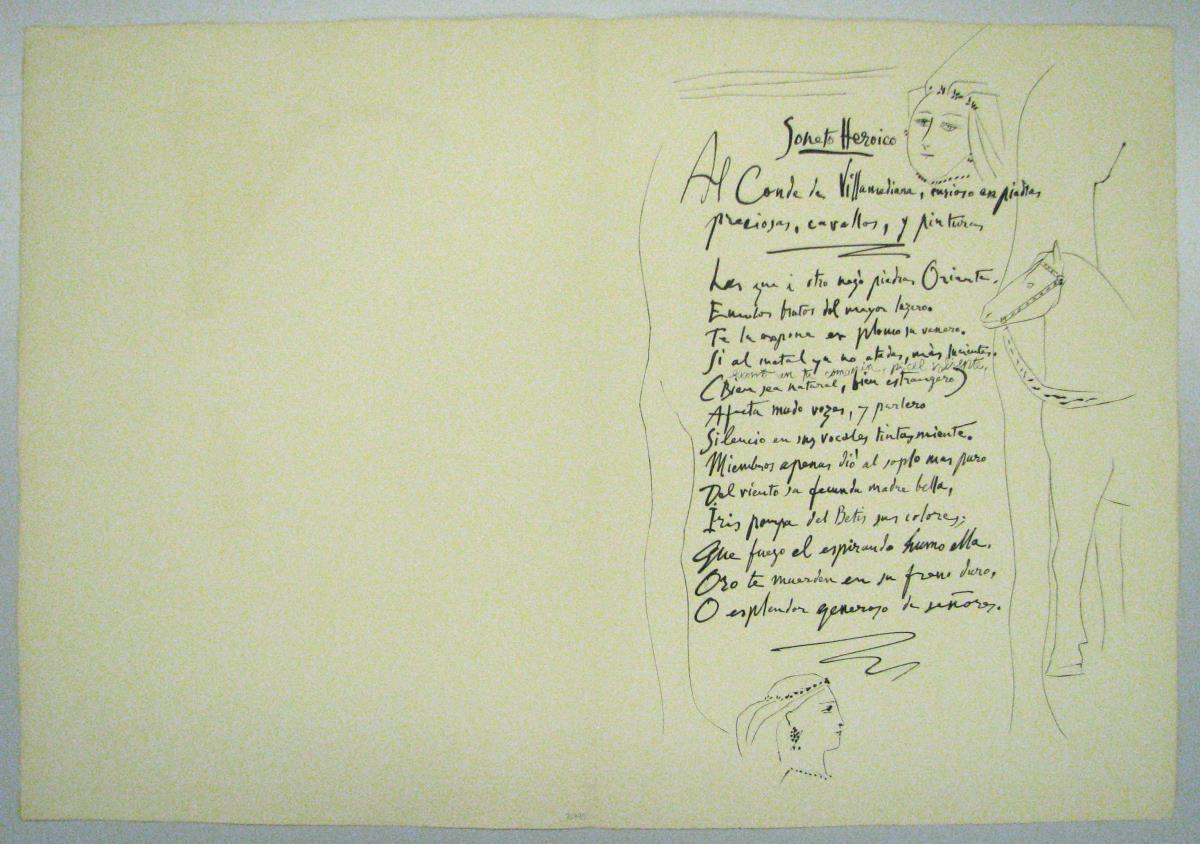 Soneto Heroico
Al Conde de Villamediana, curioso en piedras
preciosas, cavallos, y pinturas
Las que á otro negó piedras Oriente.
Emulos brutos del mayor lazero.
Te la expone en plomo su venero.
Si al metal ya no atadas, más lucientes.
quanto en tu camarin, pincel valiente,
(Bien sea natural, bien estrangero)
Afecta mudo vozes, y parlero
Silencio en sus vocales tintas miente.
Miembros apenas dió al soplo mas puro
Del viento su fecunda madre bella,
Iris pompa del Betis sus colores;
Que fuego el espirando humo ella.
Oro te muerden en su freno duro,
O esplendor generoso de señores.